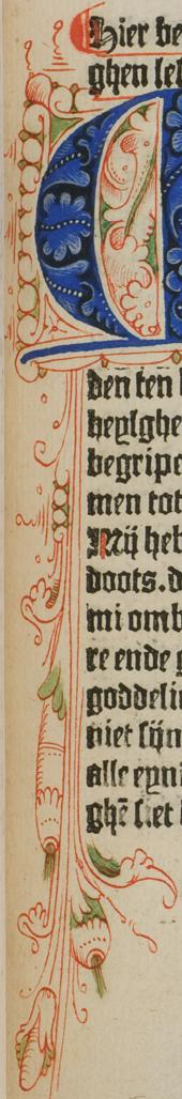 Hier be
ghen lel
den ten
heylghe
begripe
men tot
Mij heb
doots. d
mi omb
re ende g
goddelit
niet sijn
alle eyni
ghē l.et